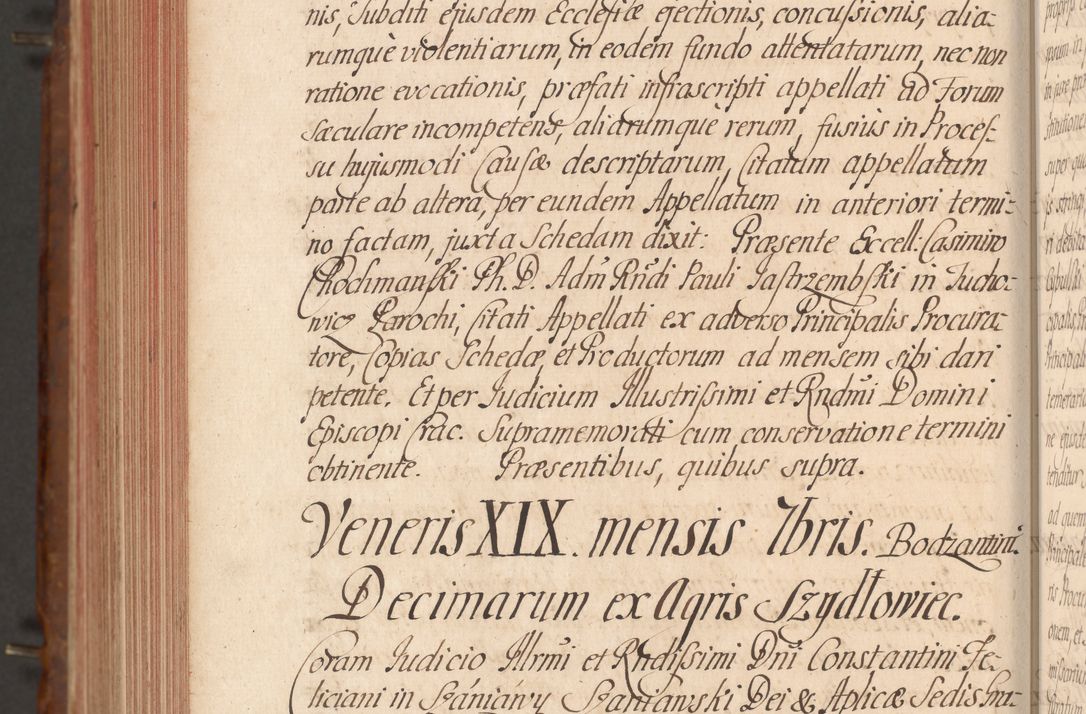 nis, Subditi ejusdem Ecclesiæ ejectionis, concussionis, alia-
rumquè violentiarum, in eodem fundo attentatarum, nec non
ratione evocationis, præfati infrascripti appellati ad Forum
Sæculare incompetens, aliarumquè rerum, fusiùs in Proces-
su hujusmodi Causæ descriptarum, Citatum appellatum
parte ab altera, per eundem Appellatum in anteriori termi-
no factam, juxta Schedam dixit: Præsente Excell: Casimiro
Chochmański Ph. D. Adm̄ Rn̄di Pauli Jastrzembski in Tucho-
wicz Parochi, Citati Appellati ex adverso Principalis Procura-
tore, Copias Schedæ, et Productorum ad mensem sibi dari
petente. Et per Judicium Illustrissimi et Rndmi Domini
Episcopi Crac. Supramemorati cum conservatione termini
obtinente. Præsentibus, quibus supra.
Veneris XIX. mensis 7bris. Bodzantini.
Decimarum ex Agris Szydłowiec.
Coram Judicio Illrmi et Rndissimi Dni Constantini Fe-
liciani in Szaniawy Szaniawski Dei & Aplicæ Sedis Gra-